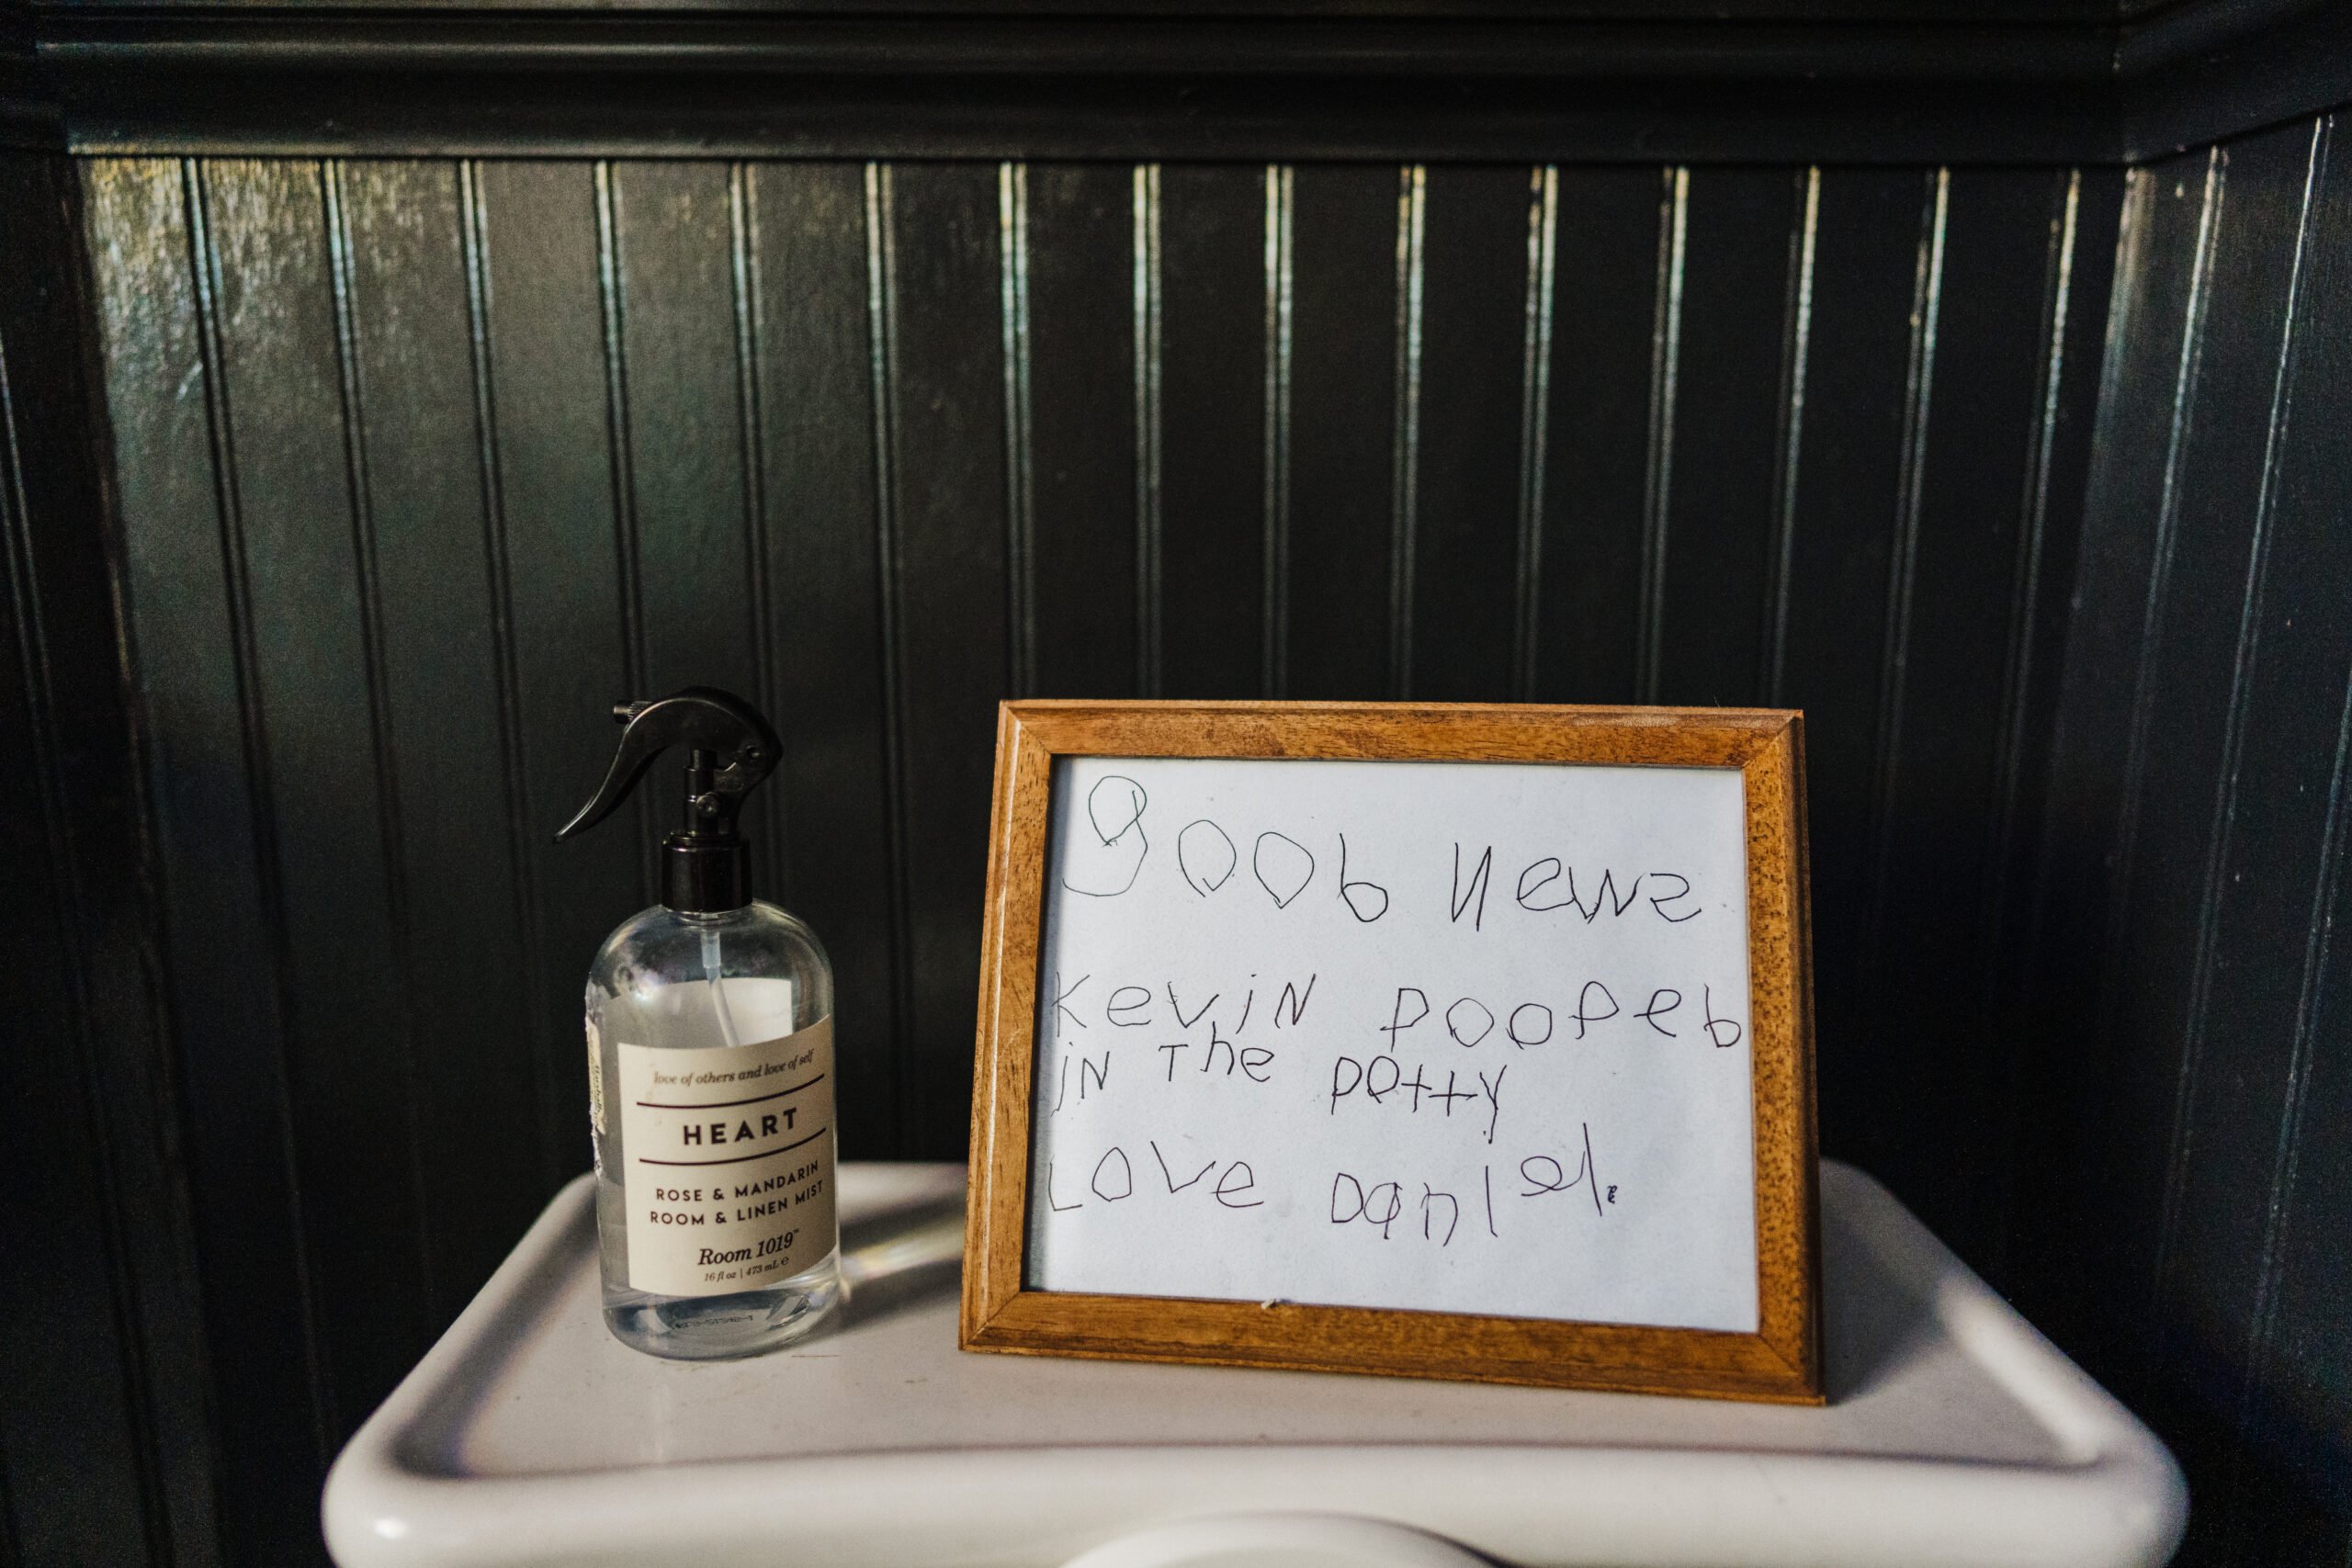 love of others and love of self
HEART
ROSE & MANDARIN
ROOM & LINEN MIST
Room 1019™
16 fl oz | 473 mL ℮
goob News
KeviN pooPeb
iN The potty
Love Daniel.